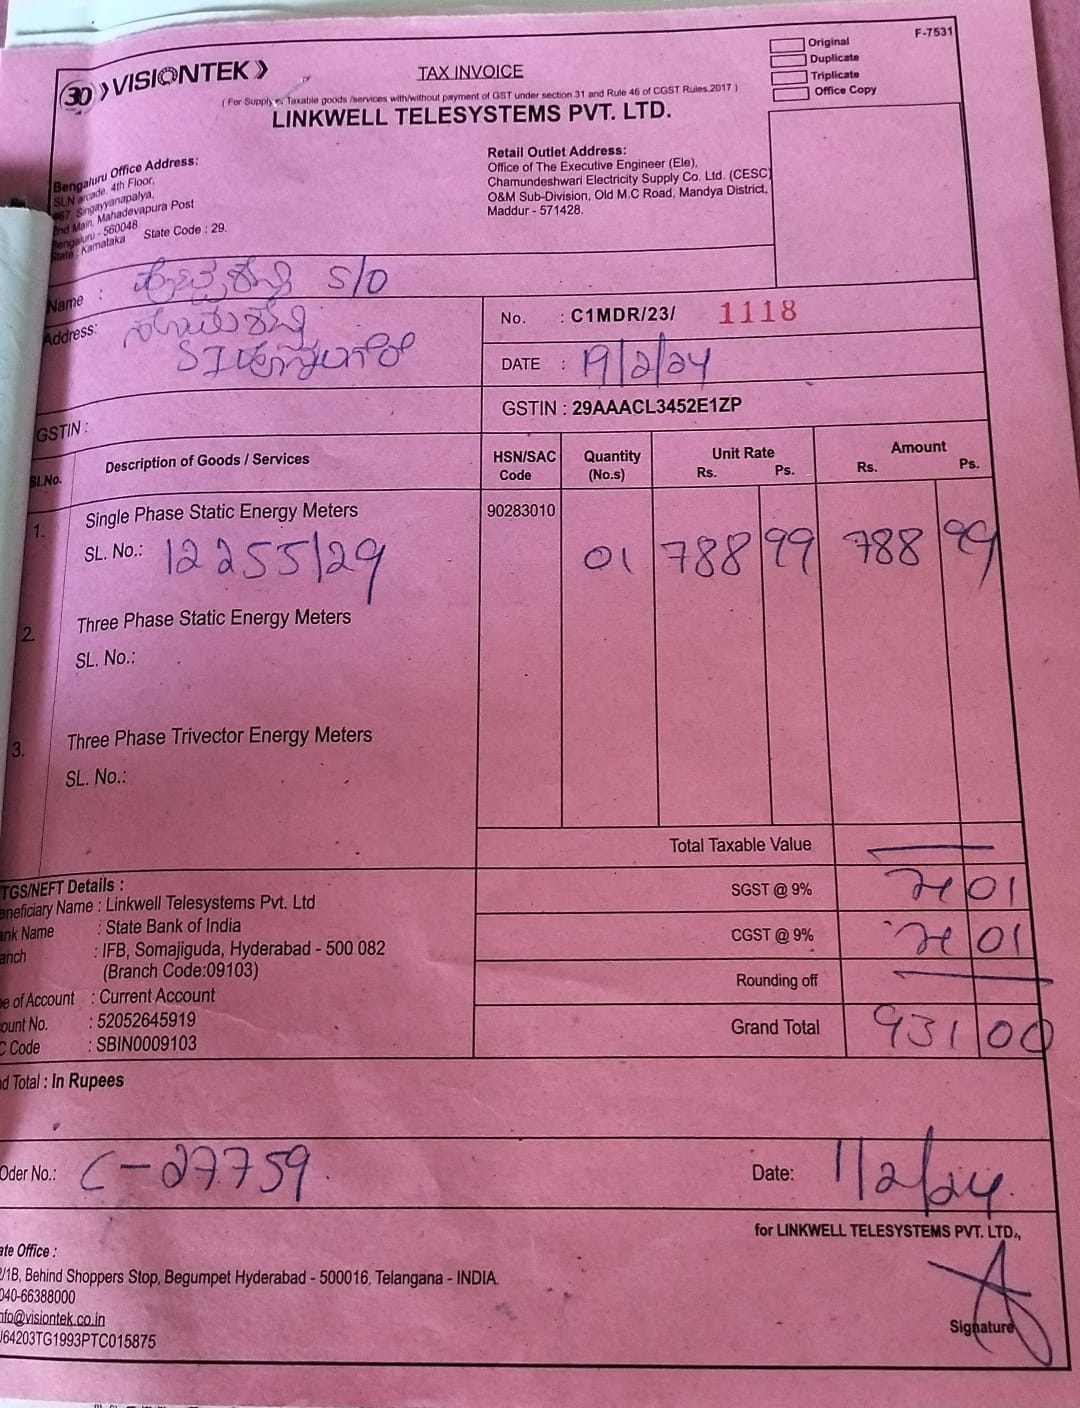 F-7531
Original
Duplicate
Triplicate
Office Copy
3D VISIONTEK
TAX INVOICE
( For Supply of Taxable goods /services with/without payment of GST under section 31 and Rule 46 of CGST Rules,2017 )
LINKWELL TELESYSTEMS PVT. LTD.
Bengaluru Office Address:
SLN arcade, 4th Floor,
#67, Singayyanapalya,
2nd Main, Mahadevapura Post
Bengaluru - 560048
State : Karnataka State Code : 29.
Retail Outlet Address:
Office of The Executive Engineer (Ele),
Chamundeshwari Electricity Supply Co. Ltd. (CESC)
O&M Sub-Division, Old M.C Road, Mandya District,
Maddur - 571428.
Name : S/O
Address:
GSTIN :
No. : C1MDR/23/ 1118
DATE : 19/2/24
GSTIN : 29AAACL3452E1ZP
Sl.No. Description of Goods / Services HSN/SAC Code Quantity (No.s) Unit Rate Rs. Ps. Amount Rs. Ps.
1. Single Phase Static Energy Meters 90283010
SL. No.: 12255129 01 788 99 788 99
2. Three Phase Static Energy Meters
SL. No.:
3. Three Phase Trivector Energy Meters
SL. No.:
Total Taxable Value
SGST @ 9% 71 01
CGST @ 9% 71 01
Rounding off
Grand Total 931 00
TGS/NEFT Details :
eneficiary Name : Linkwell Telesystems Pvt. Ltd
ank Name : State Bank of India
anch : IFB, Somajiguda, Hyderabad - 500 082
(Branch Code:09103)
pe of Account : Current Account
ount No. : 52052645919
C Code : SBIN0009103
nd Total : In Rupees
Oder No.: C-27759 Date: 11/2/24.
for LINKWELL TELESYSTEMS PVT. LTD.,
ate Office :
2/1B, Behind Shoppers Stop, Begumpet Hyderabad - 500016, Telangana - INDIA.
040-66388000
nfo@visiontek.co.in
J64203TG1993PTC015875
Signature